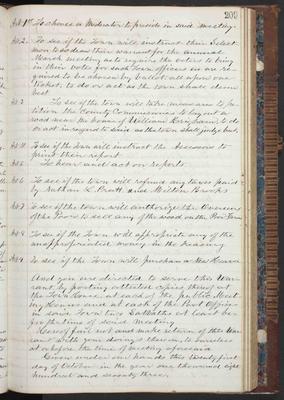 209
Art 1st To choose a Moderator to preside in said meeting.
Art 2. To see if the Town will instruct their Select
men to so draw their warrant for the annual
March meeting as to require the voters to bring
in their votes for such Town officers as are re
quired to be chosen by ballot all upon one
ticket; to do or act as the town shall deem
best
Art 3 To see if the Town will take measures to pe
tition the County Commissioners to lay out a
road near the house of William to do
or act in regard to said as the town shall judge best,
Art 4 To see if the Town will instruct the Assessors to
print their report
Art 5 To hear and act on reports.
Art 6 To see if the town will refund any taxes paid
by Nathan L. Pratt and Milton Brooks
Art 7 To see if the town will authorize the Overseers
of the Poor to sell any of the wood on the Poor Farm
Art 8 To see if the Town will appropriate any of the
unappropriated money in the treasury
Art 9 To see if the Town will purchase a New Hearse
And you are directed to serve this War
rant by posting attested copies thereof at
the Town House, at each of the public Meet
ing Houses and at each of the Post Offices
in said Town two Sabbaths at least be
fore the time of said meeting
Hereof fail not and make return of this War
rant with your doings thereon, to ourselves
at or before the time of meeting aforesaid
Given under our hands this twenty first
day of October in the year one thousand eight
hundred and seventy three.